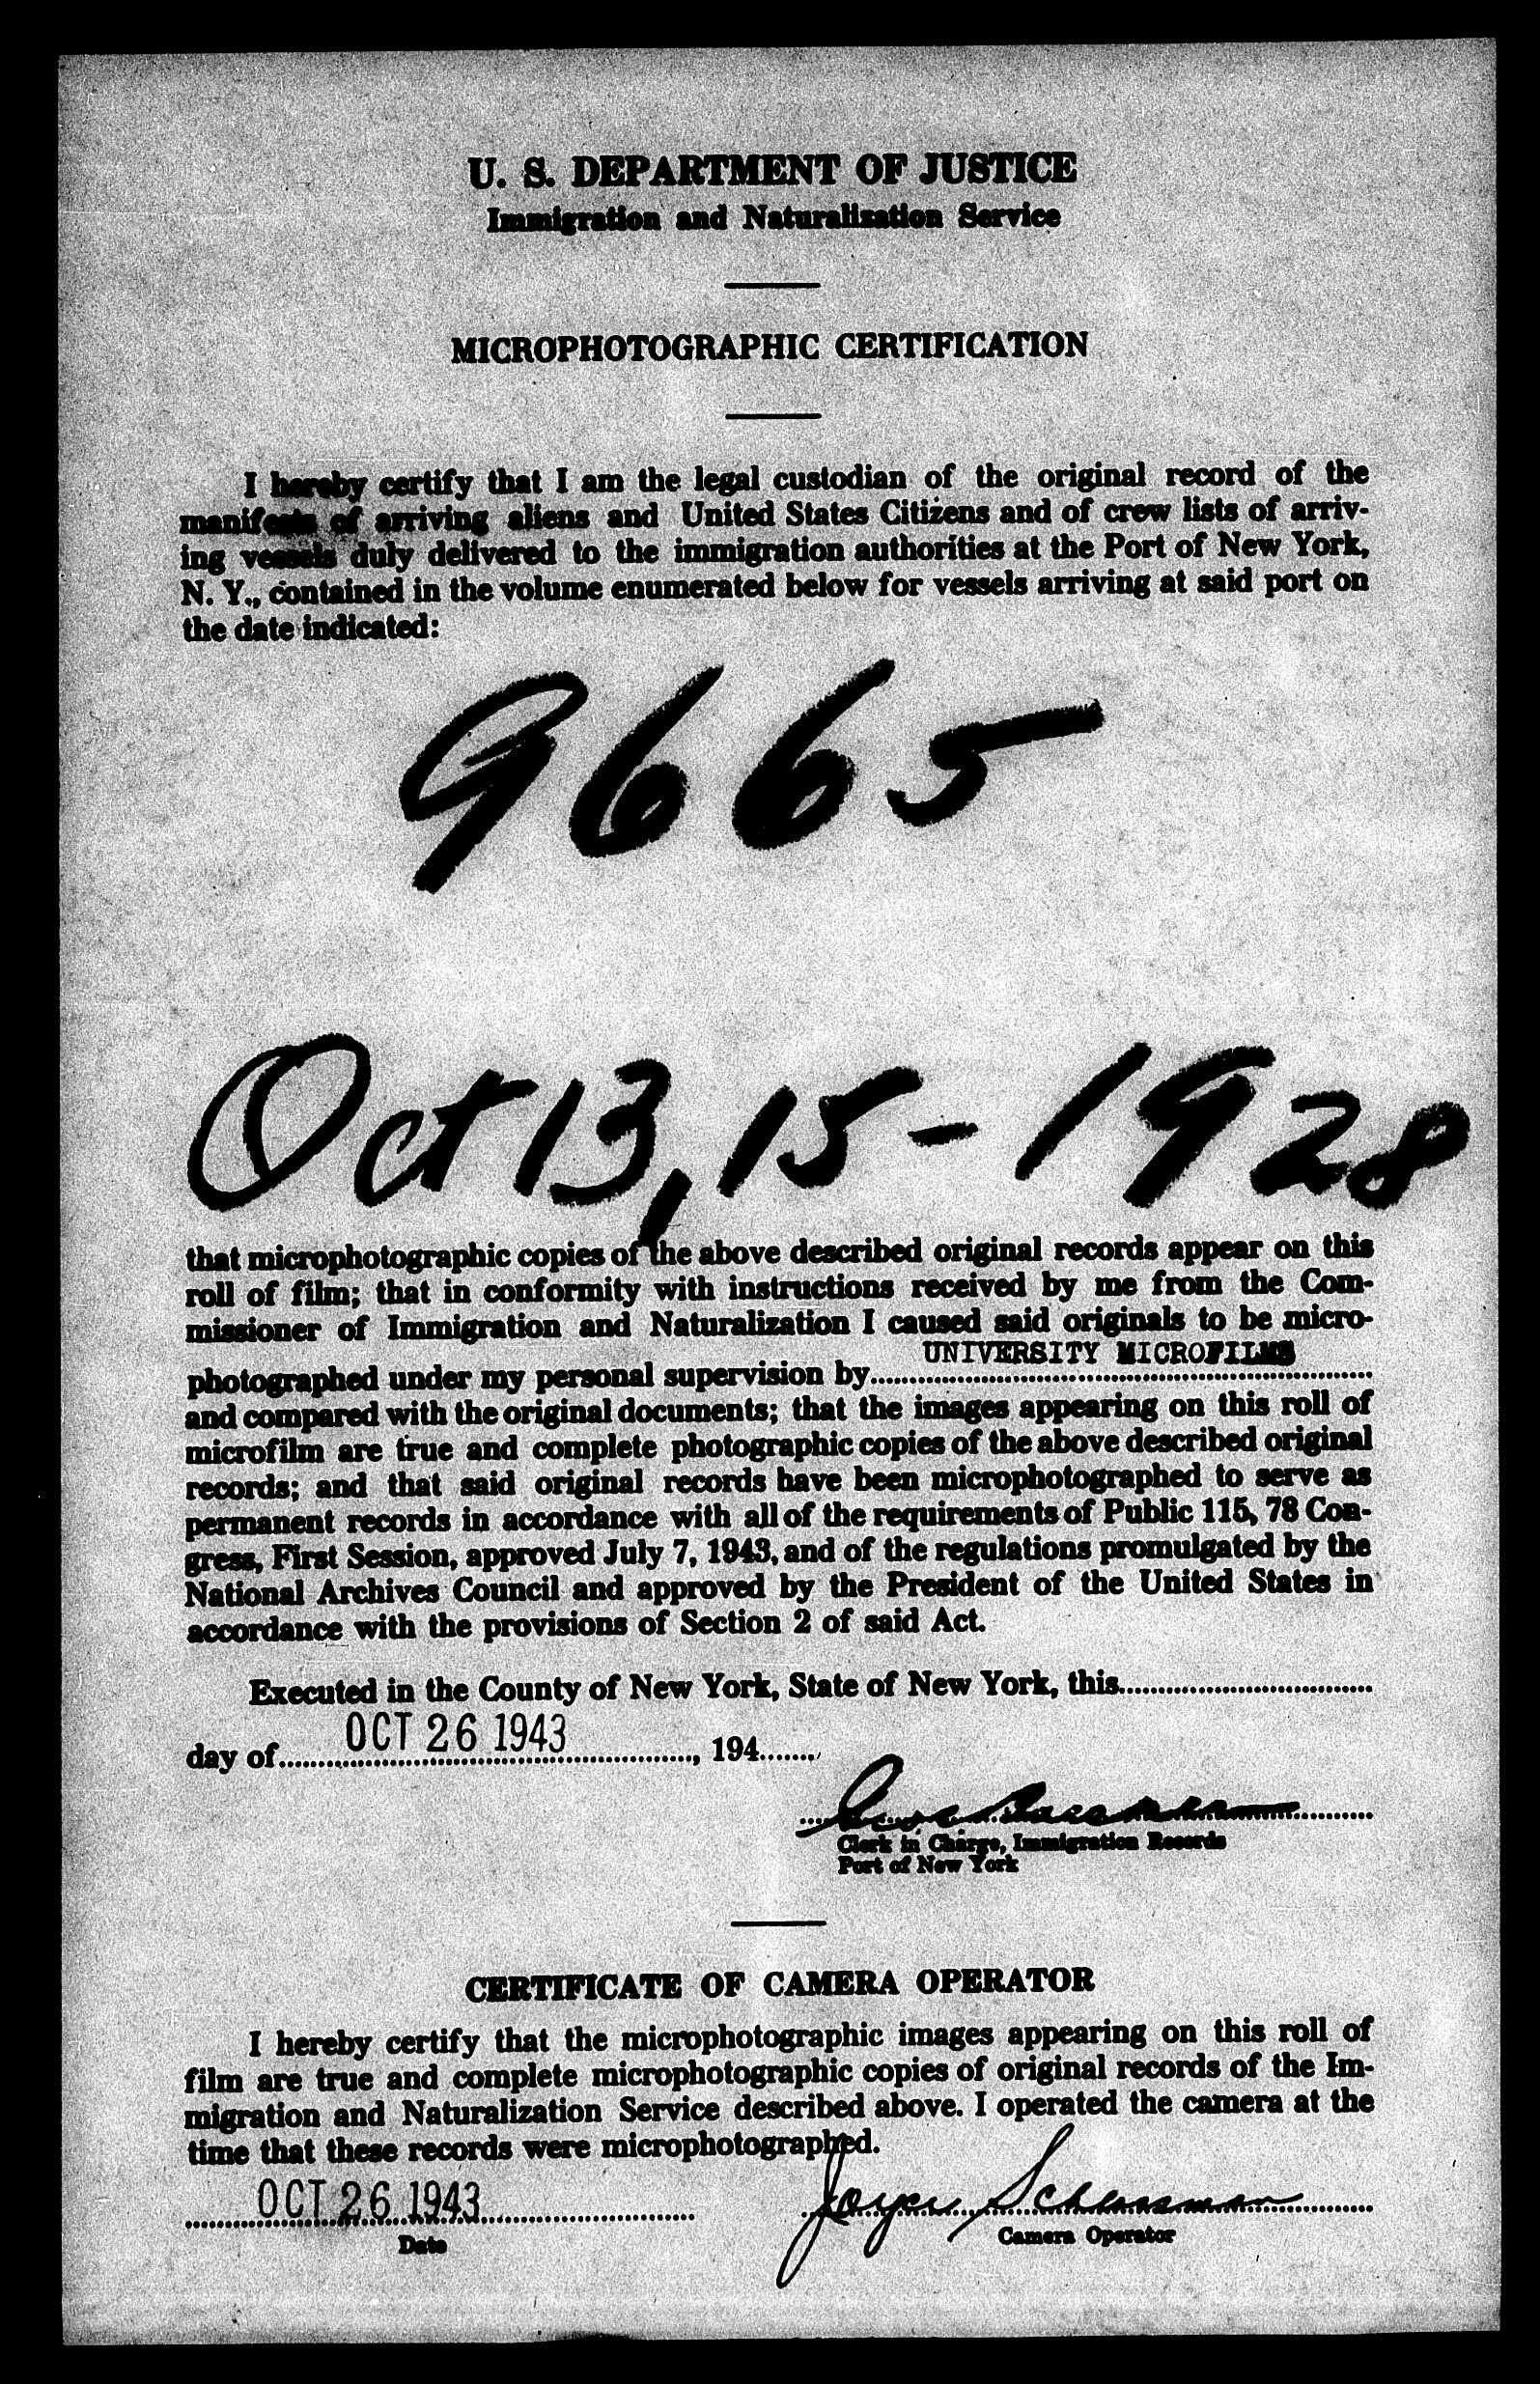 U. S. DEPARTMENT OF JUSTICE
Immigration and Naturalization Service
MICROPHOTOGRAPHIC CERTIFICATION
I hereby certify that I am the legal custodian of the original record of the
manifests of arriving aliens and United States Citizens and of crew lists of arriv-
ing vessels duly delivered to the immigration authorities at the Port of New York,
N. Y., contained in the volume enumerated below for vessels arriving at said port on
the date indicated:
9665
Oct 13, 15 - 1928
that microphotographic copies of the above described original records appear on this
roll of film; that in conformity with instructions received by me from the Com-
missioner of Immigration and Naturalization I caused said originals to be micro-
UNIVERSITY MICROFILMS
photographed under my personal supervision by
and compared with the original documents; that the images appearing on this roll of
microfilm are true and complete photographic copies of the above described original
records; and that said original records have been microphotographed to serve as
permanent records in accordance with all of the requirements of Public 115, 78 Con-
gress, First Session, approved July 7, 1943, and of the regulations promulgated by the
National Archives Council and approved by the President of the United States in
accordance with the provisions of Section 2 of said Act.
Executed in the County of New York, State of New York, this
day of OCT 26 1943, 194
Clerk in Charge, Immigration Records
Port of New York
CERTIFICATE OF CAMERA OPERATOR
I hereby certify that the microphotographic images appearing on this roll of
film are true and complete microphotographic copies of original records of the Im-
migration and Naturalization Service described above. I operated the camera at the
time that these records were microphotographed.
OCT 26 1943 Joyce
Date Camera Operator